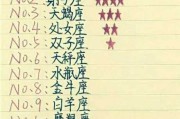 No.2:射手座★★★★
No.3:天蝎座★★★★
No.4:处女座★★
No.5:双子座★
No.6:天秤座
No.7:水瓶座
No.8:金牛座
No.9:白羊座